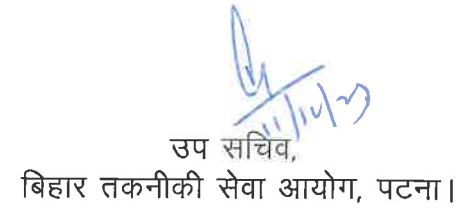 उप सचिव,
बिहार तकनीकी सेवा आयोग, पटना।